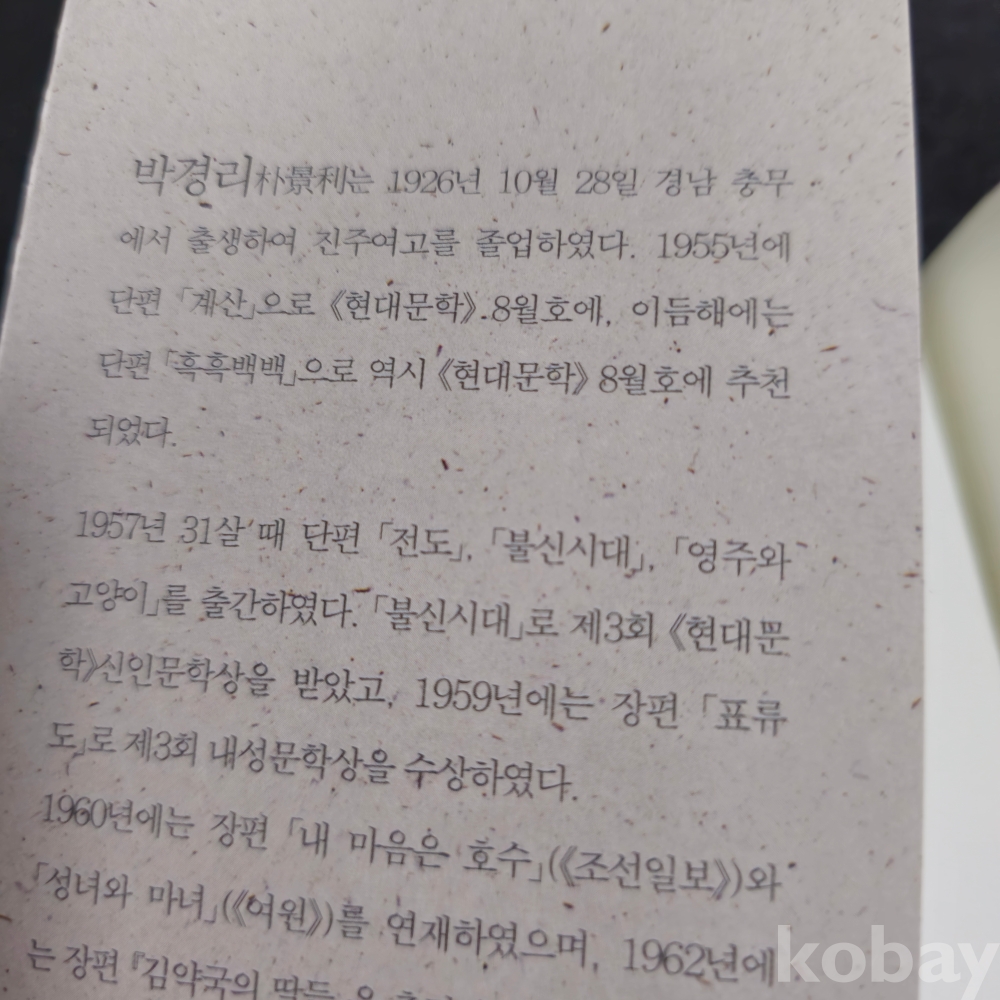 박경리朴景利는 1926년 10월 28일 경남 충무
에서 출생하여 진주여고를 졸업하였다. 1955년에
단편 「계산」으로 《현대문학》 8월호에, 이듬해에는
단편 「흑흑백백」으로 역시 《현대문학》 8월호에 추천
되었다.
1957년 31살 때 단편 「전도」, 「불신시대」, 「영주와
고양이」를 출간하였다. 「불신시대」로 제3회 《현대문
학》신인문학상을 받았고, 1959년에는 장편 「표류
도」로 제3회 내성문학상을 수상하였다.
1960년에는 장편 「내 마음은 호수」(《조선일보》)와
「성녀와 마녀」(《여원》)를 연재하였으며, 1962년에
는 장편 『김약국의 딸들
kobay